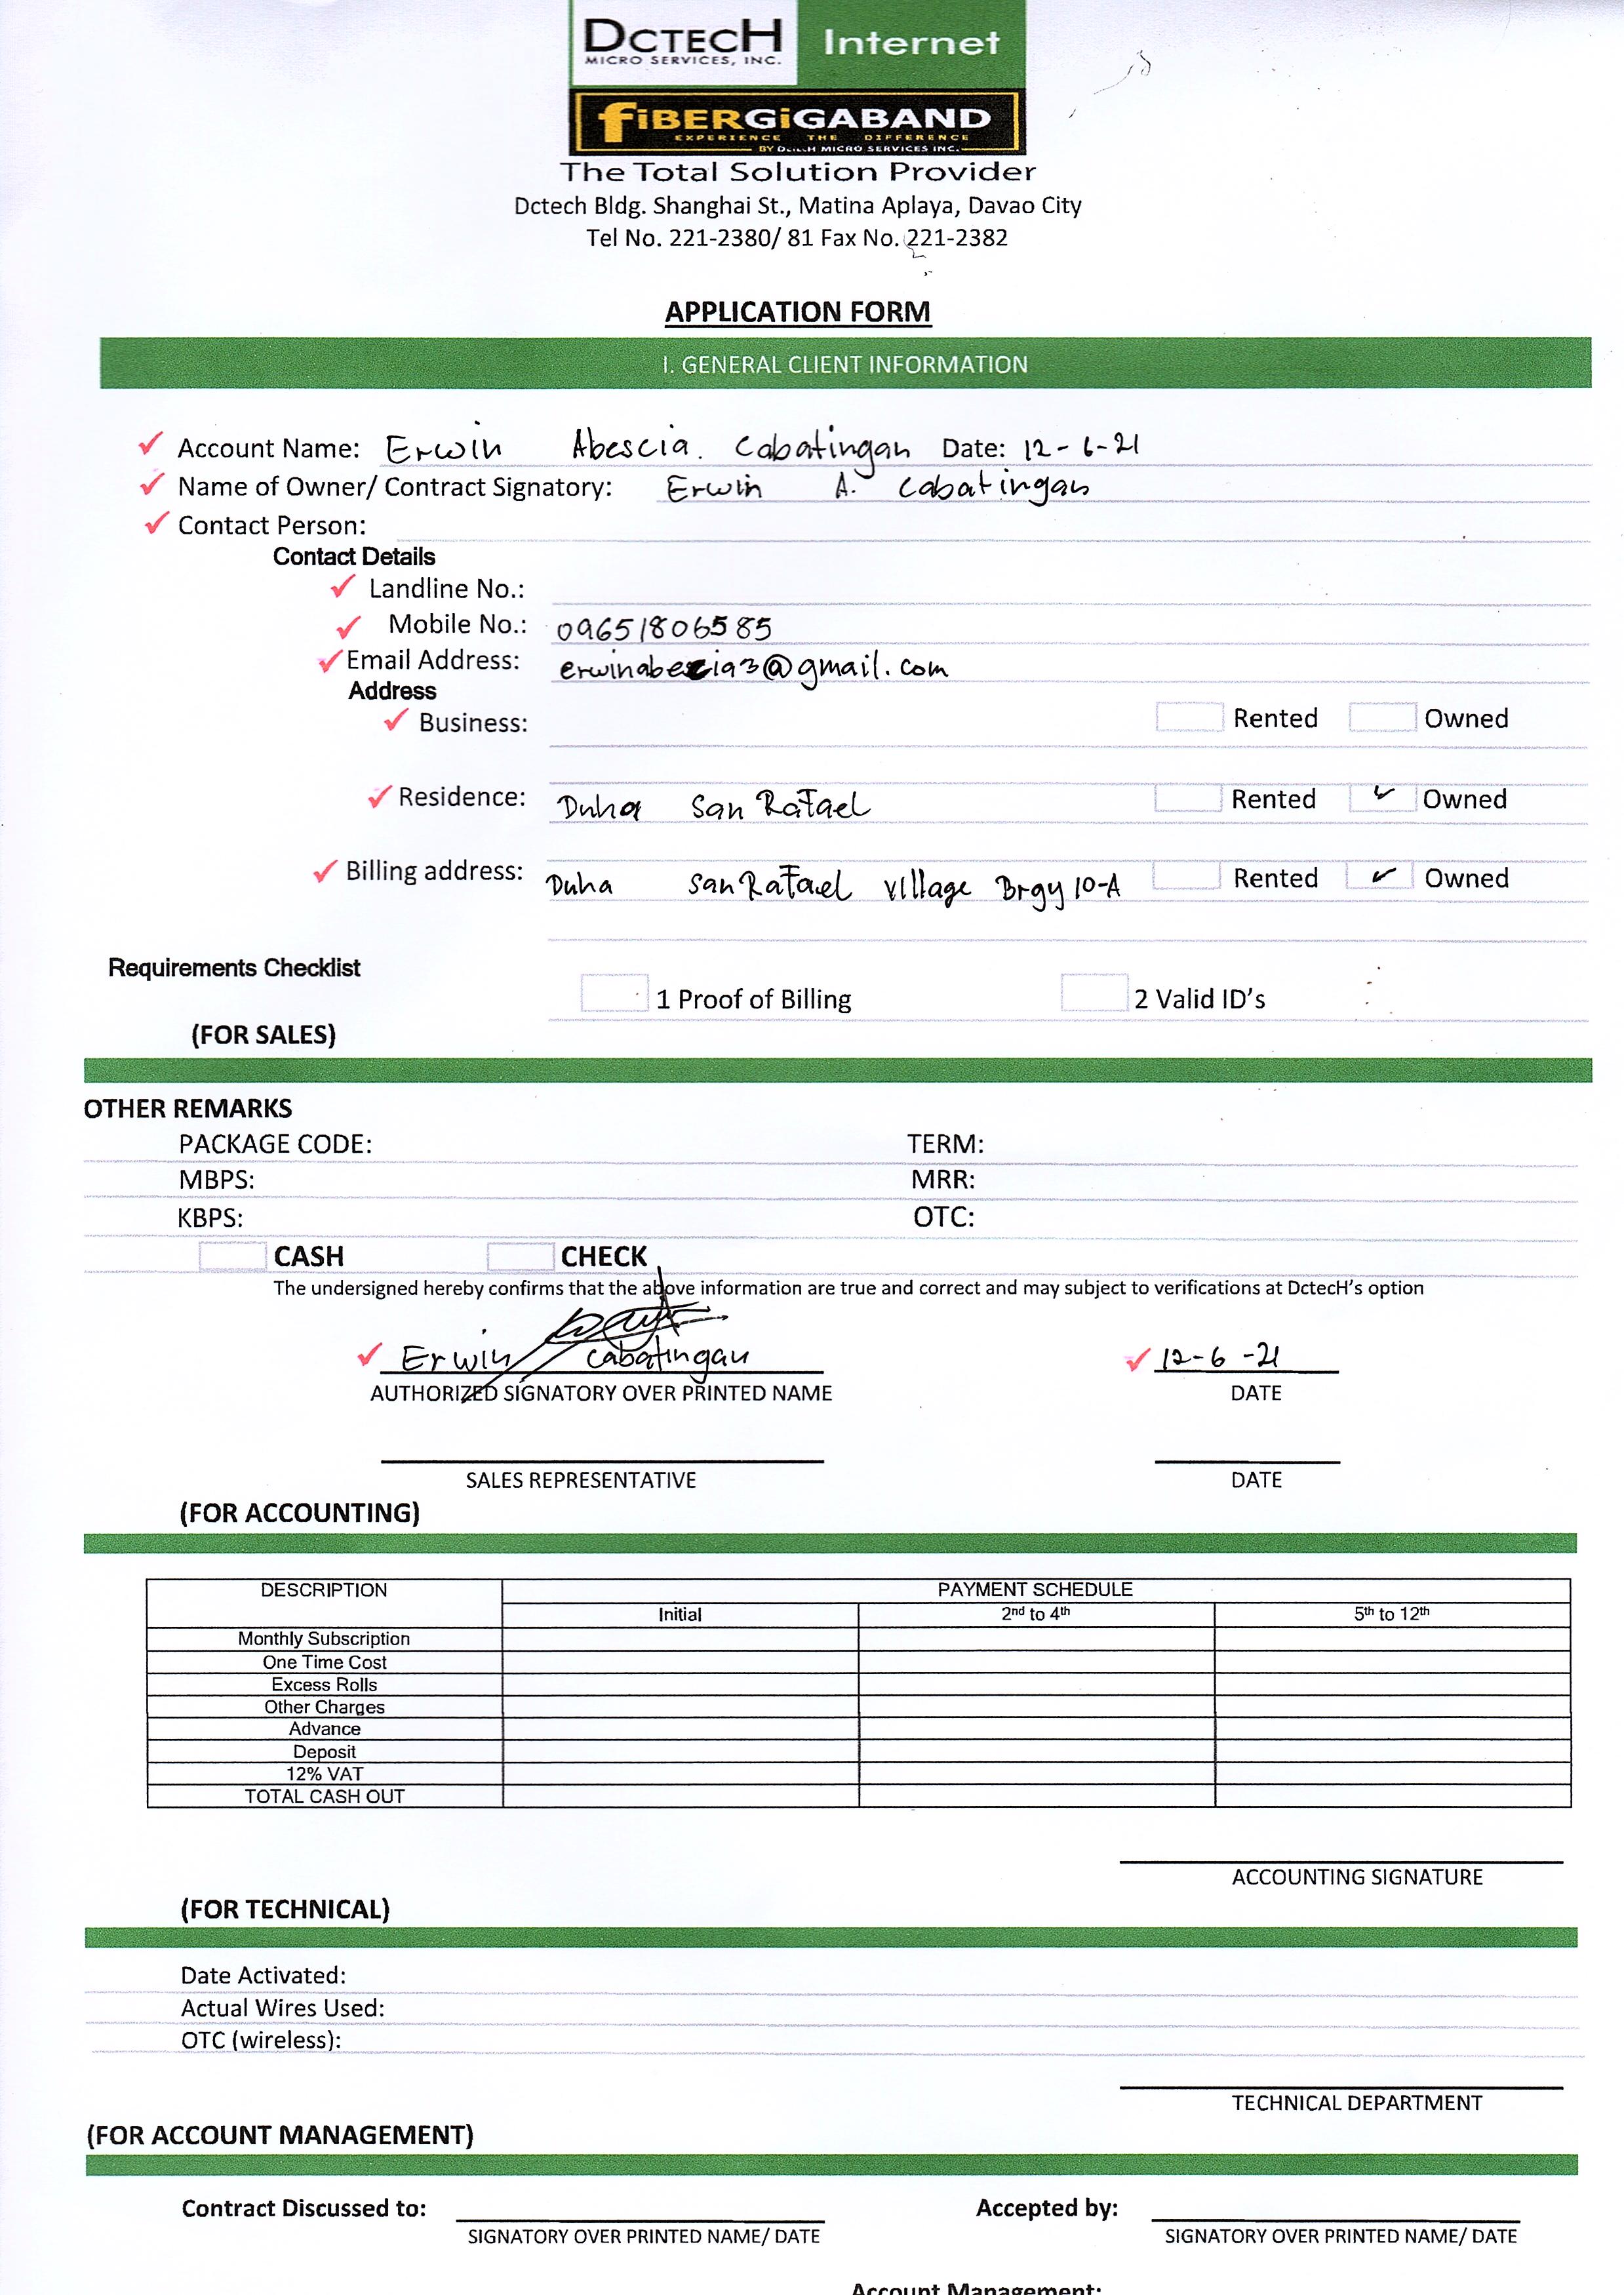 DCTECH Internet
MICRO SERVICES, INC.
FiBERGiGABAND
EXPERIENCE THE DIFFERENCE
BY DCTECH MICRO SERVICES INC.
The Total Solution Provider
Dctech Bldg. Shanghai St., Matina Aplaya, Davao City
Tel No. 221-2380/ 81 Fax No. 221-2382
APPLICATION FORM
I. GENERAL CLIENT INFORMATION
Account Name: Erwin Abescia. Cabatingan Date: 12-6-21
Name of Owner/ Contract Signatory: Erwin A. Cabatingan
Contact Person:
Contact Details
Landline No.:
Mobile No.: 09651806585
Email Address: @gmail.com
Address
Business: Rented Owned
Residence: Duha San Rafael Rented Owned
Billing address: Duha San Rafael village Brgy 10-A Rented Owned
Requirements Checklist
1 Proof of Billing 2 Valid ID's
(FOR SALES)
OTHER REMARKS
PACKAGE CODE: TERM:
MBPS: MRR:
KBPS: OTC:
CASH CHECK
The undersigned hereby confirms that the above information are true and correct and may subject to verifications at DctecH's option
Erwin Cabatingan 12-6-21
AUTHORIZED SIGNATORY OVER PRINTED NAME DATE
SALES REPRESENTATIVE DATE
(FOR ACCOUNTING)
DESCRIPTION PAYMENT SCHEDULE
Initial 2nd to 4th 5th to 12th
Monthly Subscription
One Time Cost
Excess Rolls
Other Charges
Advance
Deposit
12% VAT
TOTAL CASH OUT
ACCOUNTING SIGNATURE
(FOR TECHNICAL)
Date Activated:
Actual Wires Used:
OTC (wireless):
TECHNICAL DEPARTMENT
(FOR ACCOUNT MANAGEMENT)
Contract Discussed to: Accepted by:
SIGNATORY OVER PRINTED NAME/ DATE SIGNATORY OVER PRINTED NAME/ DATE
Account Management: